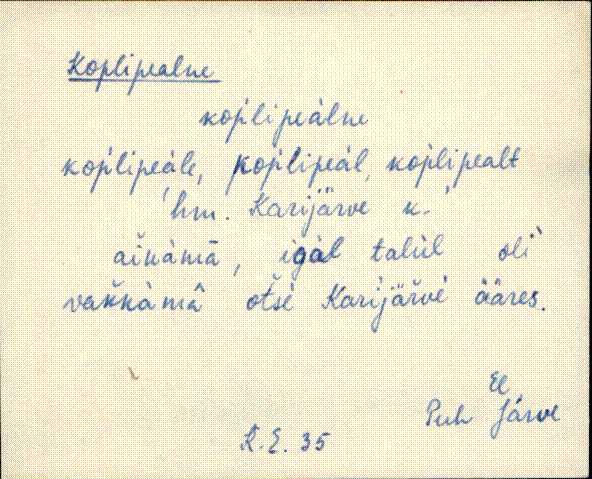 Koplipealne
kop̀lipeàlne
kop̀lipeàle, kop̀lipeàl, kop̀lipealt
hm. Karijärve k.
aǐnàmā, igàl talùl oli`
vaňnàmâ otšè Karijäřvè ääres.
El
Puh Järve
K.E. 35